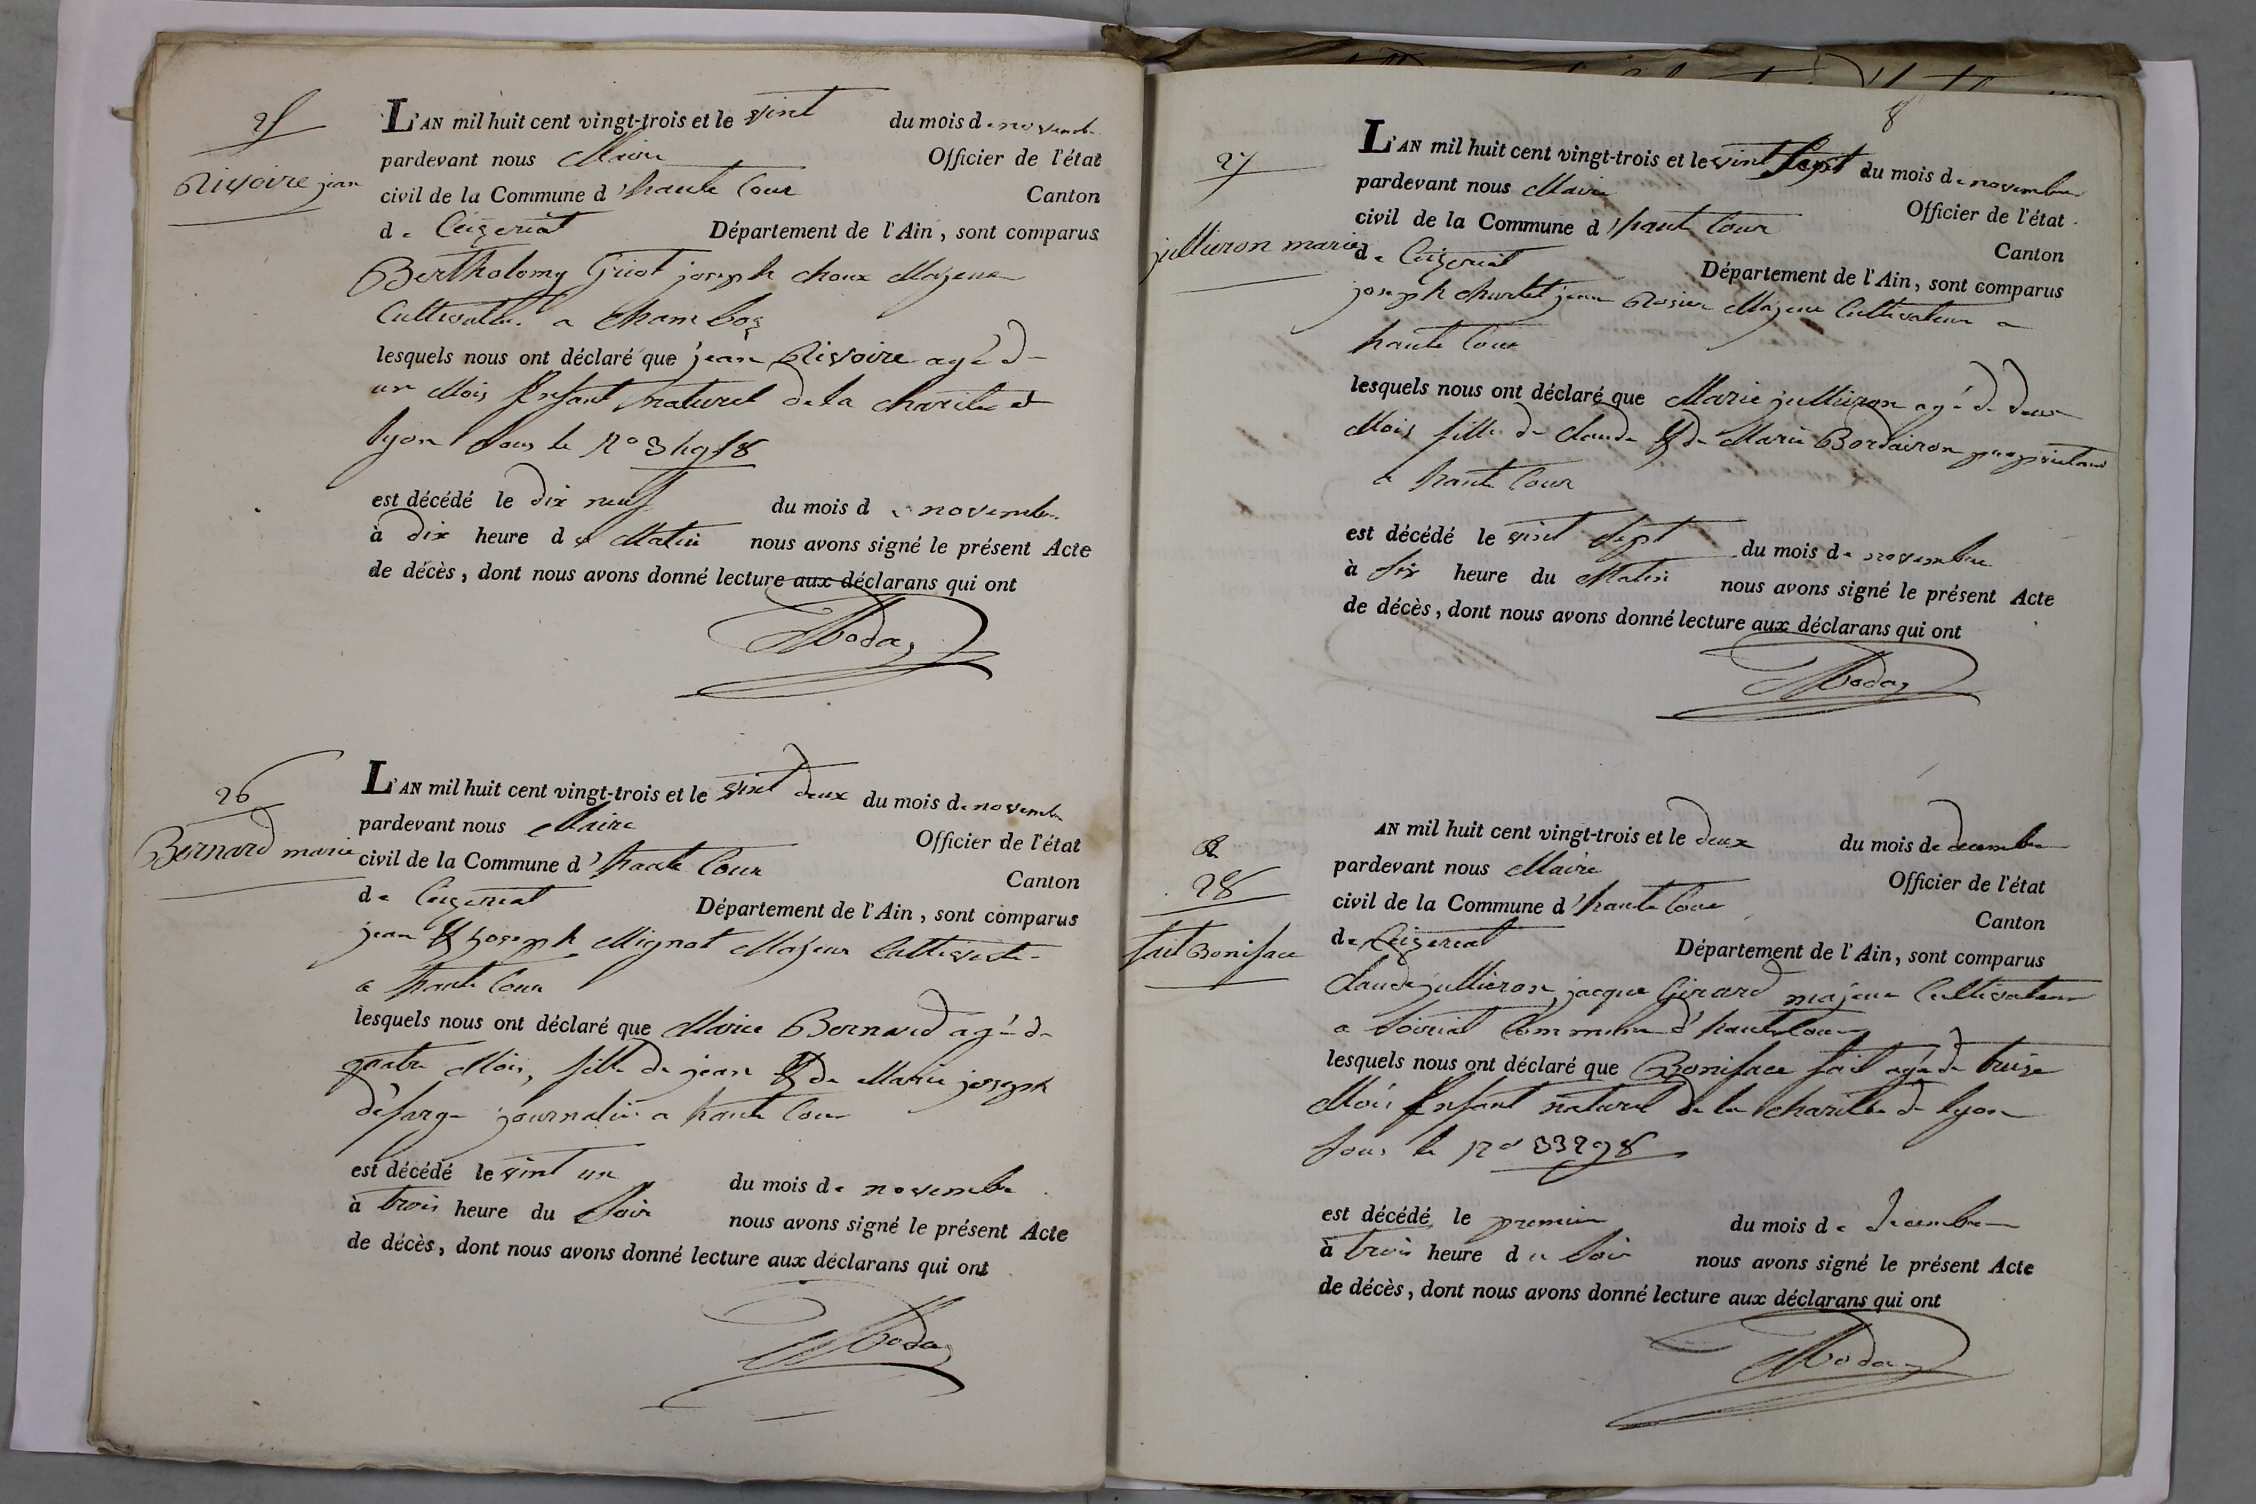 25
Rivoire jean
L'AN mil huit cent vingt-trois et le vint du mois de novembre
pardevant nous Maire Officier de l'état
civil de la Commune d'haute Cour Canton
de Ceizeriat Département de l'Ain, sont comparus
Bertholomy joseph Majeur
Cultivateur a
lesquels nous ont déclaré que jean Rivoire agé d
un Mois Enfant naturel de la charite et
lyon sous le No
est décédé le dix neuf du mois de novembre
à dix heure du Matin nous avons signé le présent Acte
de décès, dont nous avons donné lecture aux déclarans qui ont
26
Bernard marie
L'AN mil huit cent vingt-trois et le vint deux du mois de novembre
pardevant nous Maire Officier de l'état
civil de la Commune d'haute Cour Canton
de Ceizeriat Département de l'Ain, sont comparus
jean & joseph Mignot Majeur Cultivateur
a haute Cour
lesquels nous ont déclaré que Marie Bernard agé de
quatre Mois, fille de jean & de Marie joseph
journalier a haute Cour
est décédé le vint un du mois de novembre
à trois heure du Soir nous avons signé le présent Acte
de décès, dont nous avons donné lecture aux déclarans qui ont
8
27
jullieron marie
L'AN mil huit cent vingt-trois et le vint Sept du mois de novembre
pardevant nous Maire Officier de l'état
civil de la Commune d'haute Cour Canton
de Ceizeriat Département de l'Ain, sont comparus
joseph jean Majeur Cultivateur a
haute Cour
lesquels nous ont déclaré que Marie jullieron agé de deux
Mois fille de Claude & de Marie Bordairon proprietaire
a haute Cour
est décédé le vint Sept du mois de novembre
à Six heure du Matin nous avons signé le présent Acte
de décès, dont nous avons donné lecture aux déclarans qui ont
28
fait Boniface
AN mil huit cent vingt-trois et le deux du mois de decembre
pardevant nous Maire Officier de l'état
civil de la Commune d'haute Cour Canton
de Ceizeriat Département de l'Ain, sont comparus
Claude jullieron, jacque Girard majeur Cultivateur
a Soiriat Commune d'haute Cour
lesquels nous ont déclaré que Boniface fait agé de treize
Mois Enfant naturel de la charite de lyon
sous le No 33298
est décédé le premier du mois de decembre
à trois heure du Soir nous avons signé le présent Acte
de décès, dont nous avons donné lecture aux déclarans qui ont